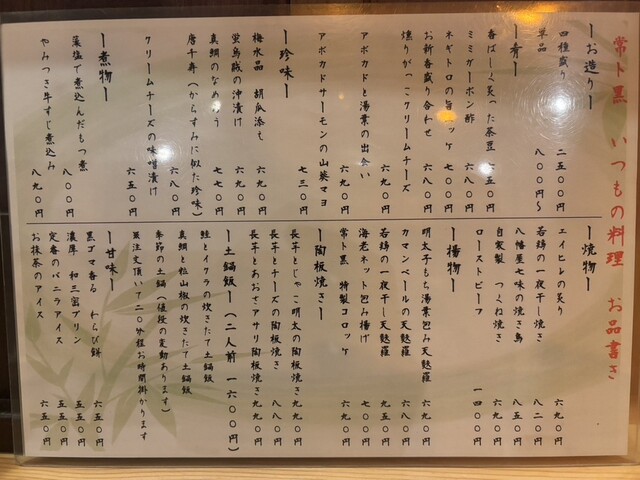 常ト黒 いつもの料理 お品書き
ーお造りー
四種盛り 二五〇〇円
単品 八〇〇円〜
ー肴ー
香ばしく炙った茶豆 六五〇円
ミミガーポン酢
ネギトロの旨ユッケ 七〇〇円
お新香盛り合わせ 六八〇円
燻りがっこクリームチーズ
アボカドと湯葉の出会い 六九〇円
アボカドサーモンの山葵マヨ 七三〇円
ー珍味ー
梅水晶 胡瓜添え 六九〇円
蛍烏賊の沖漬け 六九〇円
真鯛のなめろう 七七〇円
唐千寿（からすみに似た珍味） 六八〇円
クリームチーズの味噌漬け 六五〇円
ー煮物ー
藻塩で煮込んだもつ煮 八〇〇円
やみつき牛すじ煮込み 八九〇円
ー焼物ー
エイヒレの炙り 六九〇円
若鶏の一夜干し焼き 八二〇円
八幡屋七味の焼き鳥 八五〇円
自家製 つくね焼き
ローストビーフ 一四〇〇円
ー揚物ー
明太子もち湯葉包み天麩羅 六九〇円
カマンベールの天麩羅 六八〇円
若鶏の一夜干し天麩羅 九五〇円
海老ネット包み揚げ 七〇〇円
常ト黒 特製コロッケ 六九〇円
ー陶板焼きー
長芋とじゃこ明太の陶板焼き 九九〇円
長芋とチーズの陶板焼き 八八〇円
長芋とあおさアサリ陶板焼き 九九〇円
ー土鍋飯ー（二人前 一六〇〇円）
鮭とイクラの炊きたて土鍋飯
真鯛と粒山椒の炊きたて土鍋飯
季節の土鍋（値段の変動あります）
※注文頂いて二〇分程お時間掛かります
ー甘味ー
黒ゴマ香る わらび餅 六五〇円
濃厚 和三盆プリン 五五〇円
定番のバニラアイス 五五〇円
お抹茶のアイス 六五〇円